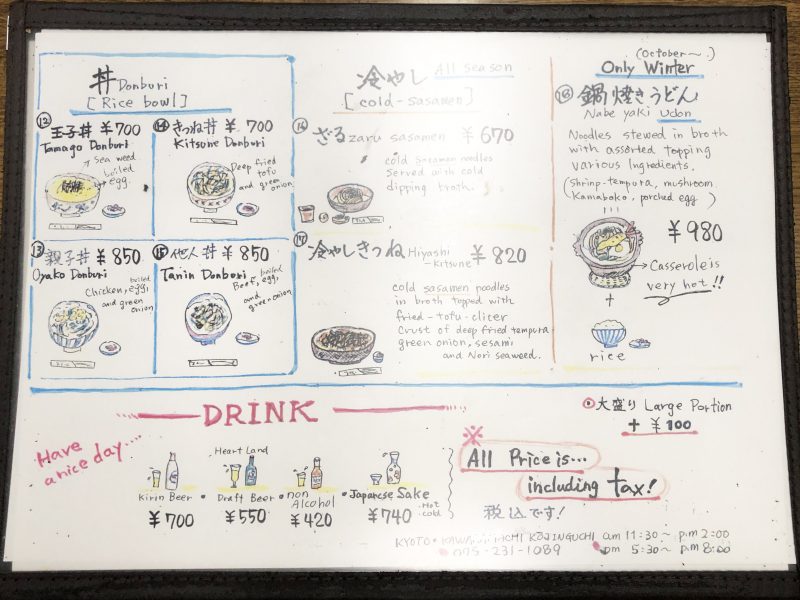 丼 Donburi
[Rice bowl]
⑫ 玉子丼 ¥700
Tamago Donburi
sea weed
boiled
egg.
⑭ きつね丼 ¥700
Kitsune Donburi
Deep fried
tofu
and green
onion.
⑬ 親子丼 ¥850
Oyako Donburi
boiled
Chicken, egg,
and green
onion
⑮ 他人丼 ¥850
Tanin Donburi
boiled
Beef, egg,
and green onion
冷やし All season
[cold-sasamen]
⑯ ざる zaru sasamen ¥670
cold sasamen noodles
served with cold
dipping broth.
⑰ 冷やしきつね Hiyashi
-Kitsune ¥820
cold sasamen noodles
in broth topped with
fried-tofu-clicer
Crust of deep fried tempura
green onion, sesami
and Nori seaweed.
(October〜.)
Only Winter
⑱ 鍋焼きうどん
Nabe yaki Udon
Noodles stewed in broth
with assorted topping
various Ingredients.
(Shrinp-tempura, mushroom
Kamaboko, porched egg)
¥980
→ Casserole is
very hot!!
+
rice
大盛り Large Portion
+ ¥100
DRINK
Have
a nice day....
Kirin Beer
¥700
Heart Land
Draft Beer
¥550
non
Alcohol
¥420
Japanese Sake
Hot
cold
¥740
※
All Price is...
including tax!
税込です!
KYOTO KAWARAMACHI KOJINGUCHI am 11:30〜 p.m 2:00
075-231-1089 pm 5:30〜 p.m 8:00